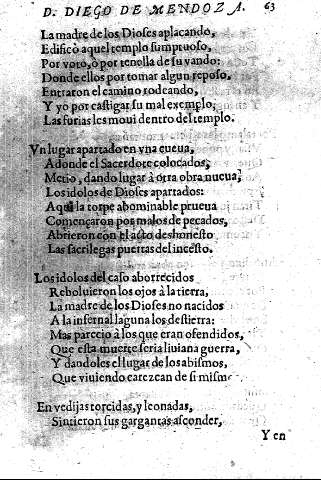 D. DIEGO DE MENDOZA. 63
La madre de los Dioses aplacando,
Edificò aquel templo sumptuoso,
Por voto, ò por tenella de su vando:
Donde ellos por tomar algun reposo,
Entraron el camino rodeando,
Y yo por castigar su mal exemplo;
Las furias les moui dentro del templo.
Vn lugar apartado en vna cueua,
Adonde el Sacerdote colocados,
Metio, dando lugar à otra obra nueua,
Los idolos de Dioses apartados:
Aqui la torpe abominable prueua
Començaron por malos de pecados,
Abrieron con el acto deshonesto
Las sacrilegas puertas del incesto.
Los idolos del caso aborrecidos
Reboluieron los ojos à la tierra,
La madre de los Dioses no nacidos
A la infernal laguna los destierra:
Mas pareciò à los que eran ofendidos,
Que esta muerte seria liuiana guerra,
Y dandoles el lugar de los abismos,
Que viuiendo carezcan de si mismos
En vedijas torcidas, y leonadas,
Sintieron sus gargantas asconder,
Y en